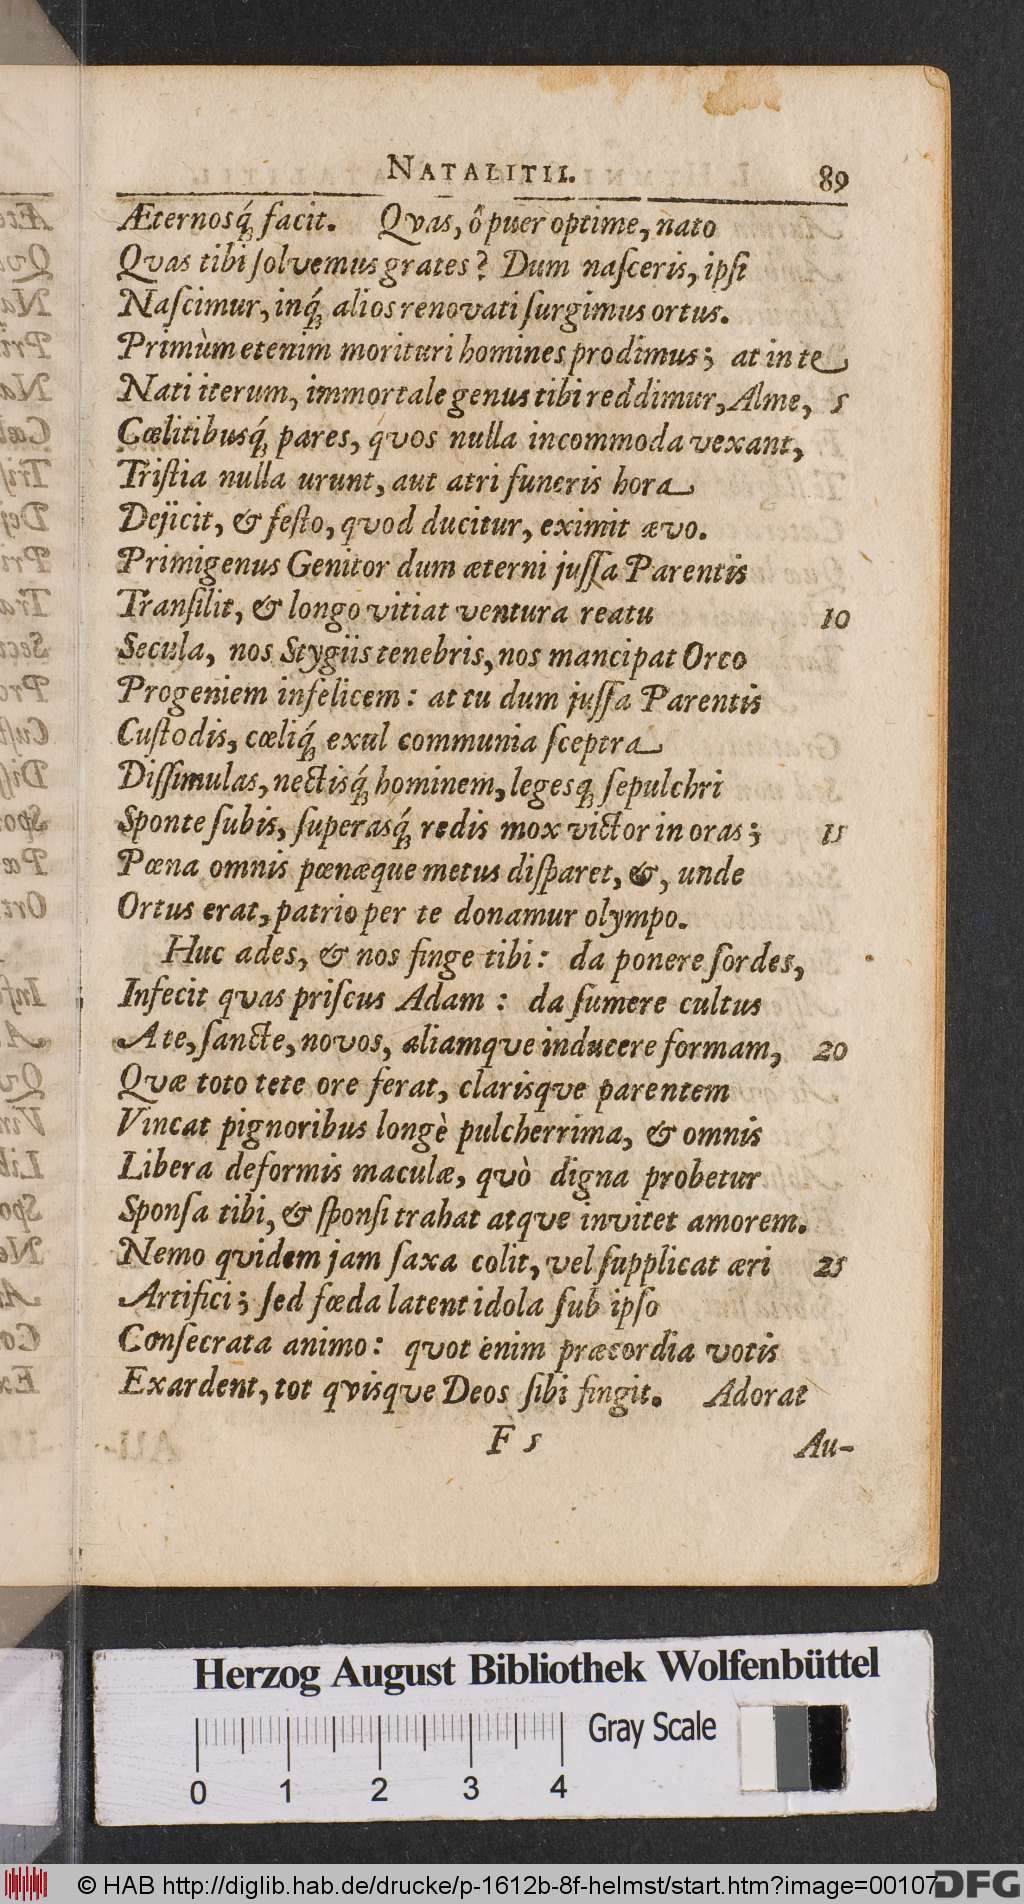 NATALITII. 89
Æternosq́; facit. Qvas, ô puer optime, nato
Qvas tibi solvemus grates? Dum nasceris, ipsi
Nascimur, inq́; alios renovati surgimus ortus.
Primùm etenim morituri homines prodimus; at in te
Nati iterum, immortale genus tibi reddimur, Alme, 5
Cœlitibusq́; pares, qvos nulla incommoda vexant,
Tristia nulla urunt, aut atri funeris hora
Dejicit, & festo, qvod ducitur, eximit ævo.
Primigenus Genitor dum æterni jussa Parentis
Transilit, & longo vitiat ventura reatu 10
Secula, nos Stygiis tenebris, nos mancipat Orco
Progeniem infelicem: at tu dum jussa Parentis
Custodis, cœliq́; exul communia sceptra
Dissimulas, nectisq́; hominem, legesq; sepulchri
Sponte subis, superasq́; redis mox victor in oras; 15
Pœna omnis pœnæque metus disparet, &, unde
Ortus erat, patrio per te donamur olympo.
Huc ades, & nos finge tibi: da ponere sordes,
Infecit qvas priscus Adam: da sumere cultus
A te, sancte, novos, aliamque inducere formam, 20
Qvæ toto tete ore ferat, clarisqve parentem
Vincat pignoribus longè pulcherrima, & omnis
Libera deformis maculæ, qvò digna probetur
Sponsa tibi, & sponsi trahat atqve invitet amorem.
Nemo qvidem jam saxa colit, vel supplicat æri 25
Artifici; sed fœda latent idola sub ipso
Consecrata animo: qvot enim præcordia votis
Exardent, tot qvisqve Deos sibi fingit. Adorat
F 5 Au-
Herzog August Bibliothek Wolfenbüttel
Gray Scale
0 1 2 3 4
© HAB http://diglib.hab.de/drucke/p-1612b-8f-helmst/start.htm?image=00107
DFG